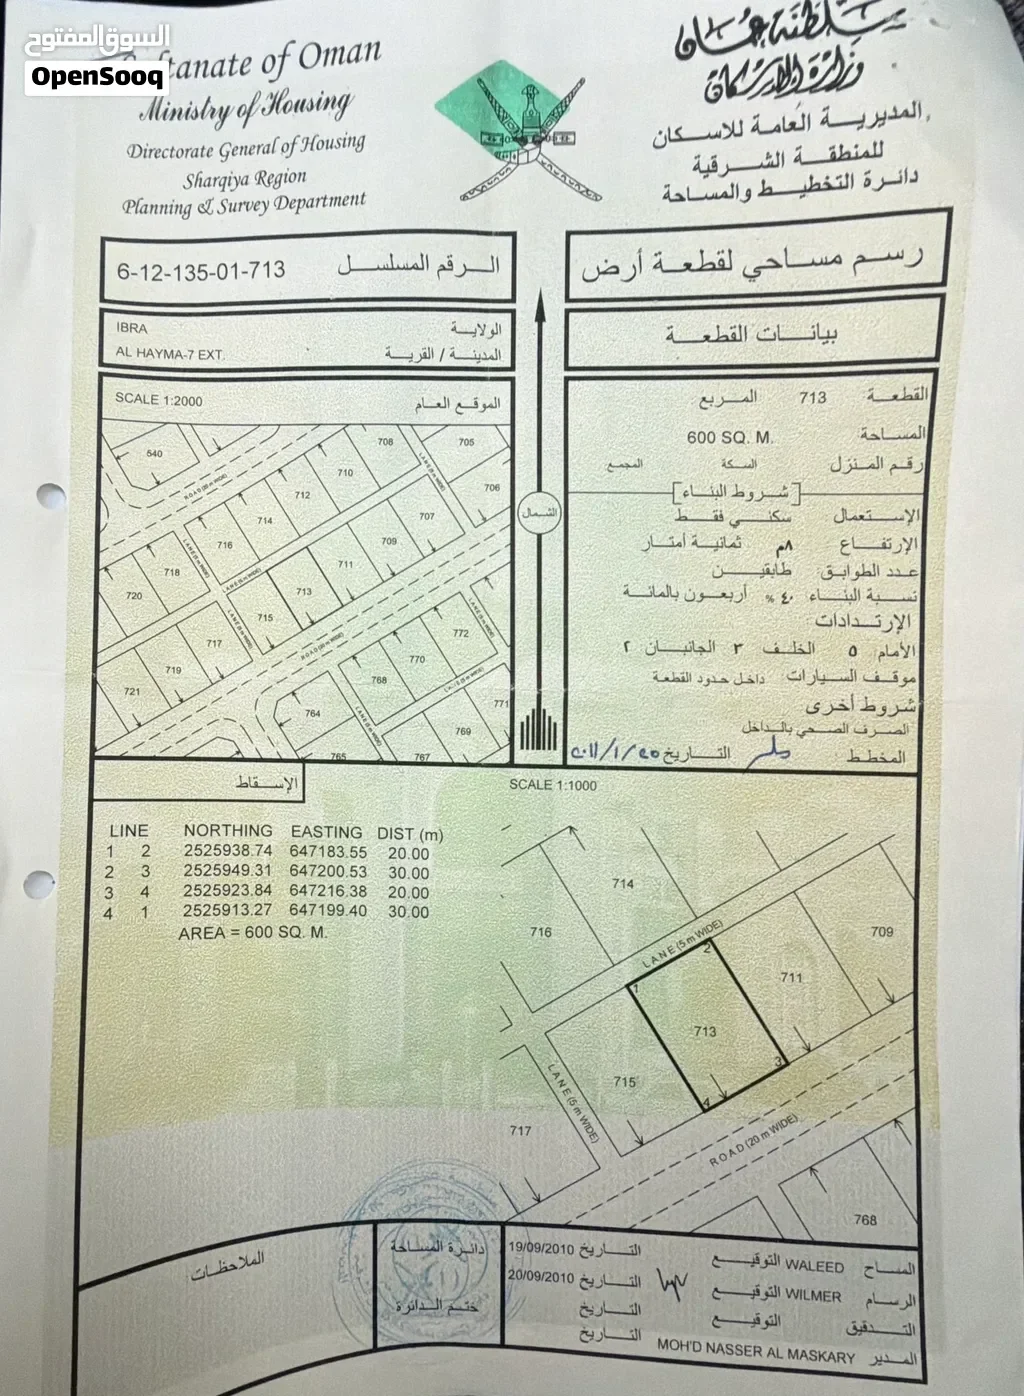 السوق المفتوح
OpenSooq
Sultanate of Oman
Ministry of Housing
Directorate General of Housing
Sharqiya Region
Planning & Survey Department
سلطنة عمان
وزارة الإسكان
المديرية العامة للاسكان
للمنطقة الشرقية
دائرة التخطيط والمساحة
6-12-135-01-713 الرقم المسلسل
رسم مساحي لقطعة أرض
IBRA الولاية
AL HAYMA-7 EXT. المدينة / القرية
بيانات القطعة
SCALE 1:2000 الموقع العام
القطعة 713 المربع
المساحة 600 SQ. M.
رقم المنزل السكة المجمع
شروط البناء
الإستعمال سكني فقط
الإرتفاع ٨م ثمانية أمتار
عدد الطوابق طابقين
نسبة البناء ٤٠ % أربعون بالمائة
الإرتدادات
الأمام ٥ الخلف ٣ الجانبان ٢
موقف السيارات داخل حدود القطعة
شروط أخرى
الصرف الصحي بالداخل
المخطط التاريخ ٢٠١١/١/٢٥
الشمال
640
708
705
ROAD (20 m WIDE)
LANE (5 m WIDE)
710
706
712
714
707
716
LANE (5 m WIDE)
709
718
LANE (5 m WIDE)
711
720
713
715
LANE (5 m WIDE)
717
ROAD (20 m WIDE)
772
LANE (5 m WIDE)
719
770
721
768
LANE (5 m WIDE)
764
LANE (5 m WIDE)
771
769
765
767
الإسقاط
SCALE 1:1000
LINE NORTHING EASTING DIST (m)
1 2 2525938.74 647183.55 20.00
2 3 2525949.31 647200.53 30.00
3 4 2525923.84 647216.38 20.00
4 1 2525913.27 647199.40 30.00
AREA = 600 SQ. M.
714
716
LANE (5 m WIDE)
709
2
711
1
713
3
715
4
LANE (5 m WIDE)
717
ROAD (20 m WIDE)
768
الملاحظات
دائرة المساحة
ختم الدائرة
المساح WALEED التوقيع التاريخ 19/09/2010
الرسام WILMER التوقيع التاريخ 20/09/2010
التدقيق التوقيع التاريخ
المدير MOH'D NASSER AL MASKARY التاريخ